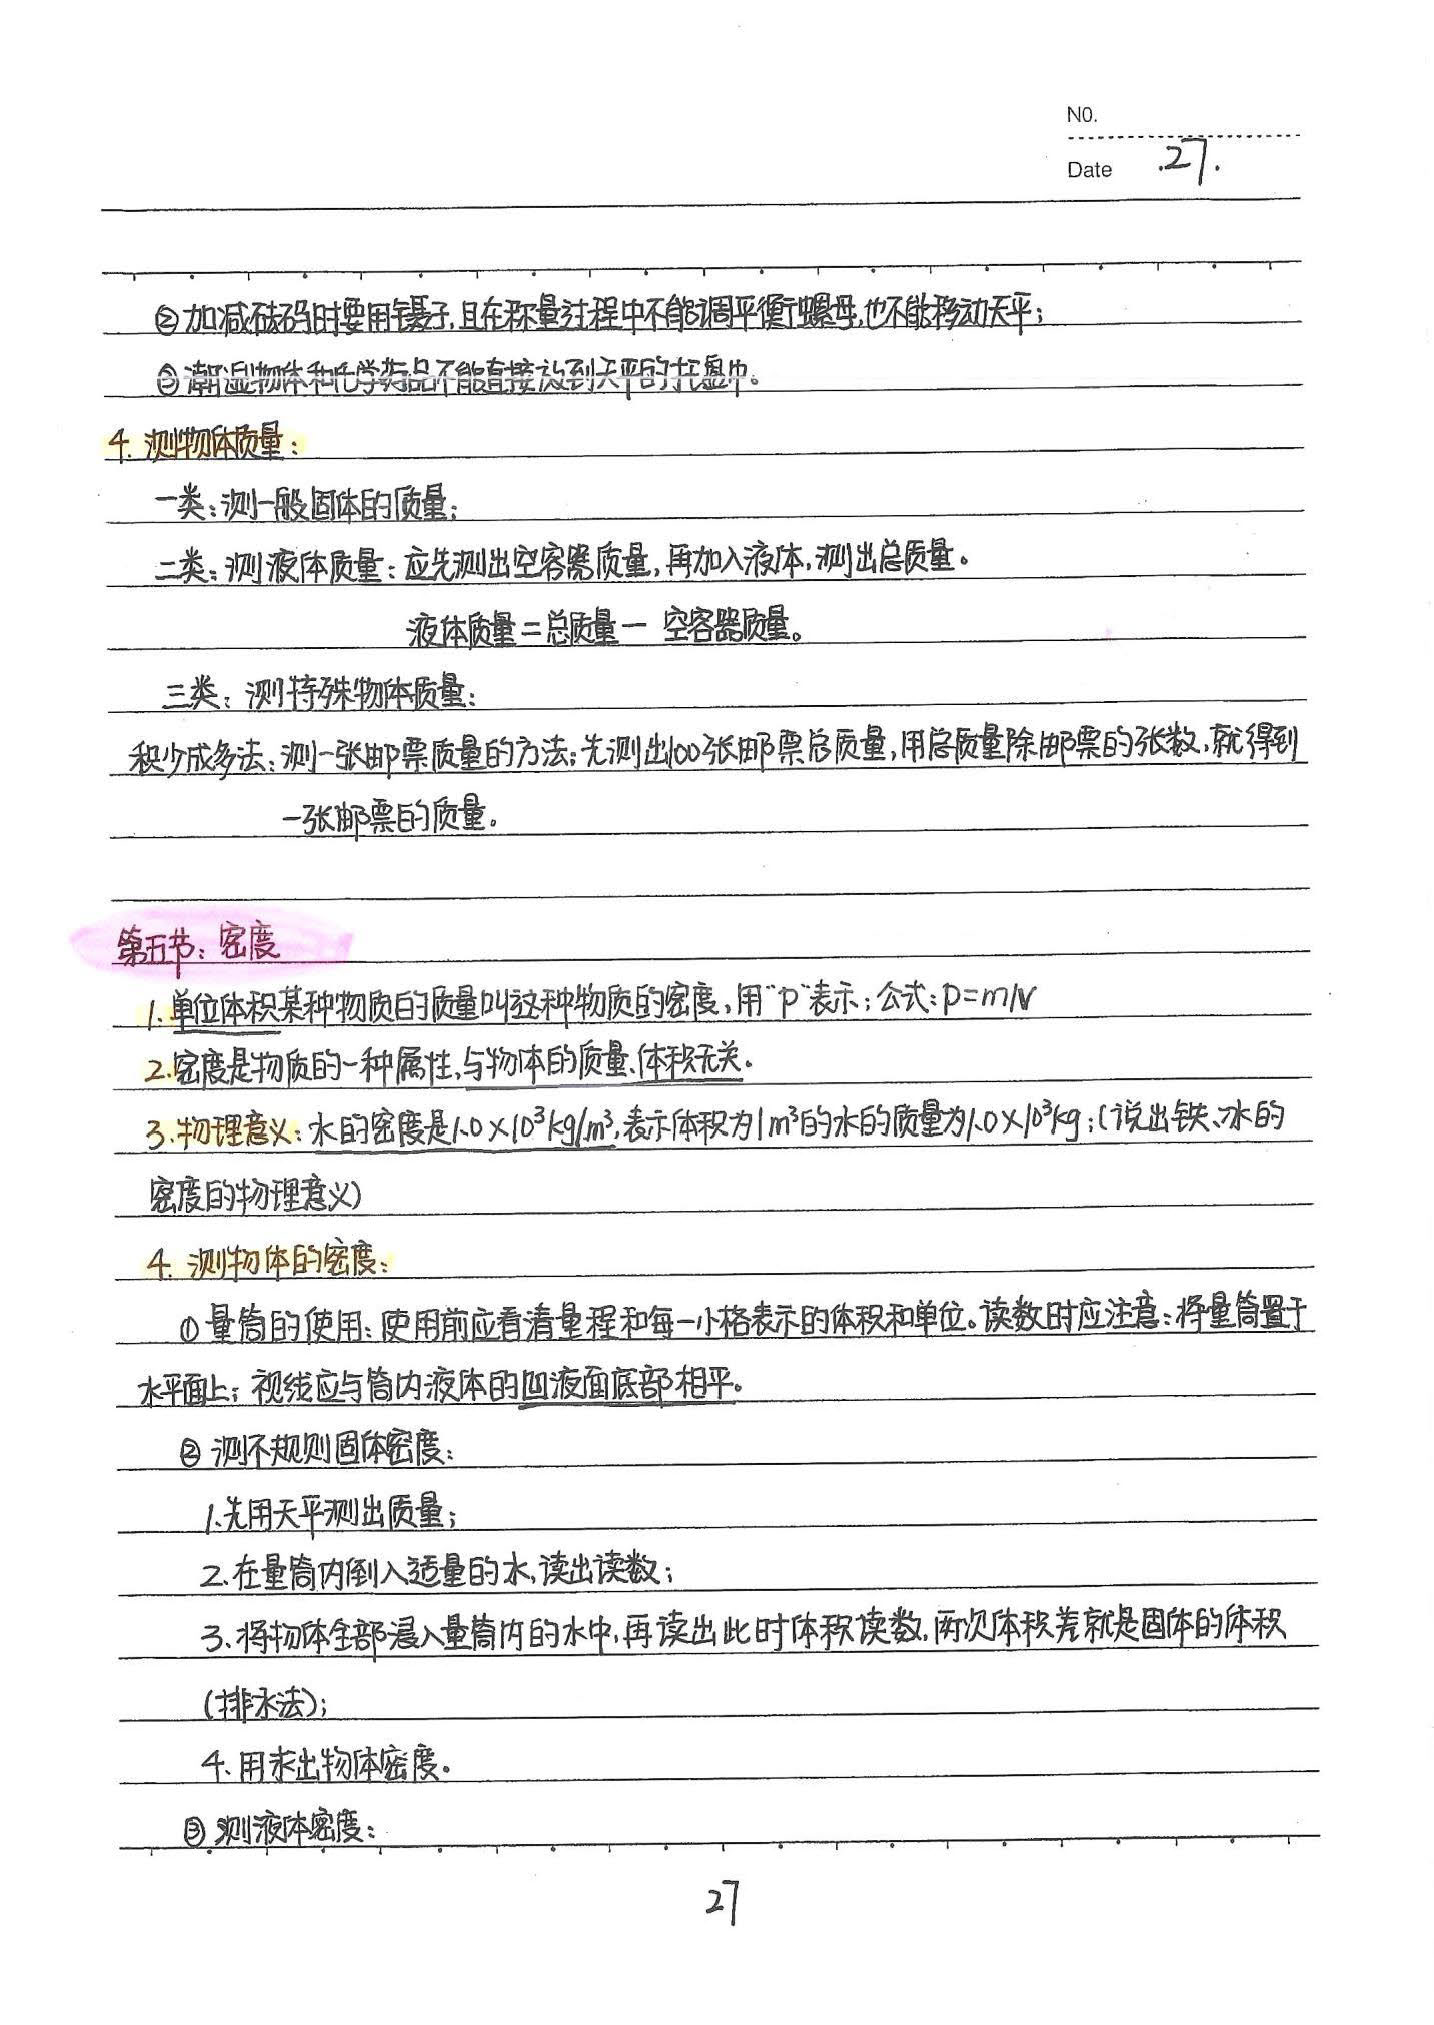 NO.
Date .27.
②加减砝码时要用镊子,且在称量过程中不能调平衡螺母,也不能移动天平;
③潮湿物体和化学药品不能直接放到天平的托盘中。
4. 测物体质量:
一类:测一般固体的质量;
二类:测液体质量:应先测出空容器质量,再加入液体,测出总质量。
液体质量=总质量- 空容器质量。
三类:测特殊物体质量:
积少成多法:测一张邮票质量的方法:先测出100张邮票总质量,用总质量除邮票的张数,就得到
一张邮票的质量。
第五节:密度
1.单位体积某种物质的质量叫这种物质的密度,用"ρ"表示;公式:ρ=m/v
2.密度是物质的一种属性,与物体的质量、体积无关。
3.物理意义:水的密度是1.0×10³kg/m³,表示体积为1m³的水的质量为1.0×10³kg;(说出铁、冰的
密度的物理意义)
4. 测物体的密度:
①量筒的使用:使用前应看清量程和每一小格表示的体积和单位。读数时应注意:将量筒置于
水平面上;视线应与筒内液体的凹液面底部相平。
②测不规则固体密度:
1.先用天平测出质量;
2.在量筒内倒入适量的水,读出读数;
3.将物体全部浸入量筒内的水中,再读出此时体积读数,两次体积差就是固体的体积
(排水法);
4.用求出物体密度。
③测液体密度:
27